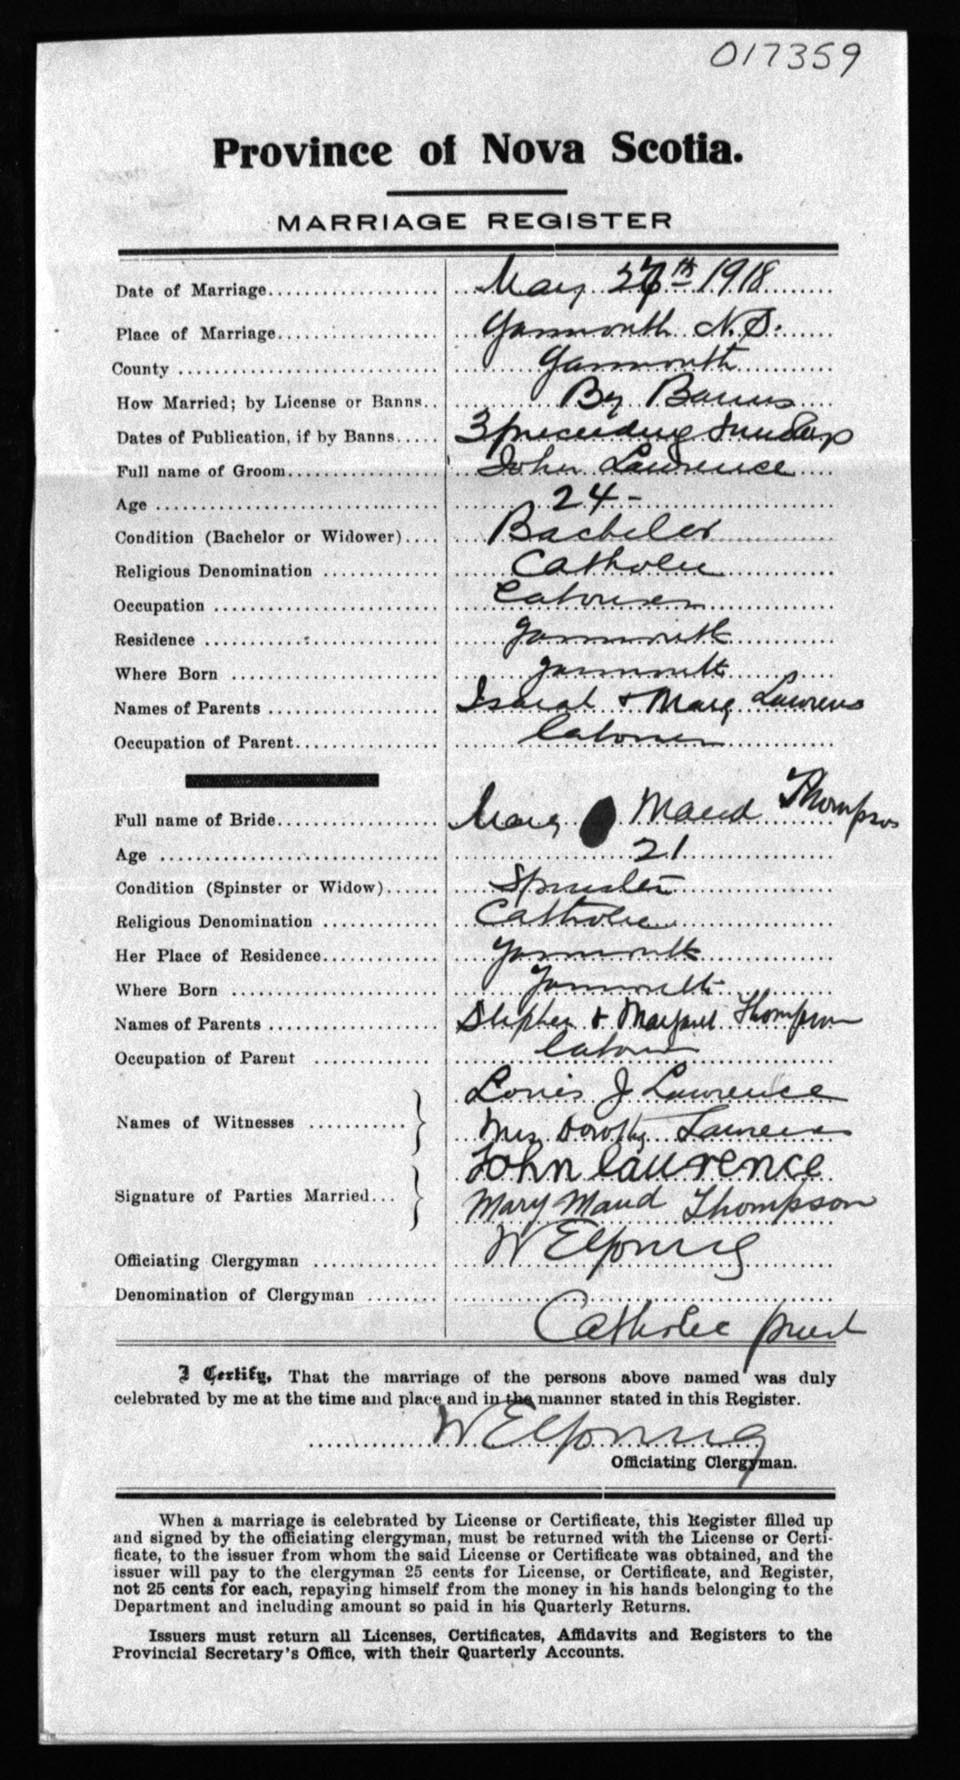 017359
Province of Nova Scotia.
MARRIAGE REGISTER
Date of Marriage May 27th 1918
Place of Marriage Yarmouth N.S.
County Yarmouth
How Married; by License or Banns By Banns
Dates of Publication, if by Banns 3 preceeding Sundays
Full name of Groom John Lawrence
Age 24 -
Condition (Bachelor or Widower) Bachelor
Religious Denomination Catholic
Occupation Labourer
Residence Yarmouth
Where Born Yarmouth
Names of Parents & Mary Lawrence
Occupation of Parent Labourer
Full name of Bride Mary Maud Thompson
Age 21
Condition (Spinster or Widow) Spinster
Religious Denomination Catholic
Her Place of Residence Yarmouth
Where Born Yarmouth
Names of Parents Stephen & Margaret Thompson
Occupation of Parent Labourer
Names of Witnesses Louis J Lawrence
Mrs Dorothy Lawrence
Signature of Parties Married John Laurence
Mary Maud Thompson
Officiating Clergyman W E Young
Denomination of Clergyman Catholic priest
I Certify, That the marriage of the persons above named was duly
celebrated by me at the time and place and in the manner stated in this Register.
W E Young
Officiating Clergyman.
When a marriage is celebrated by License or Certificate, this Register filled up
and signed by the officiating clergyman, must be returned with the License or Certi-
ficate, to the issuer from whom the said License or Certificate was obtained, and the
issuer will pay to the clergyman 25 cents for License, or Certificate, and Register,
not 25 cents for each, repaying himself from the money in his hands belonging to the
Department and including amount so paid in his Quarterly Returns.
Issuers must return all Licenses, Certificates, Affidavits and Registers to the
Provincial Secretary's Office, with their Quarterly Accounts.